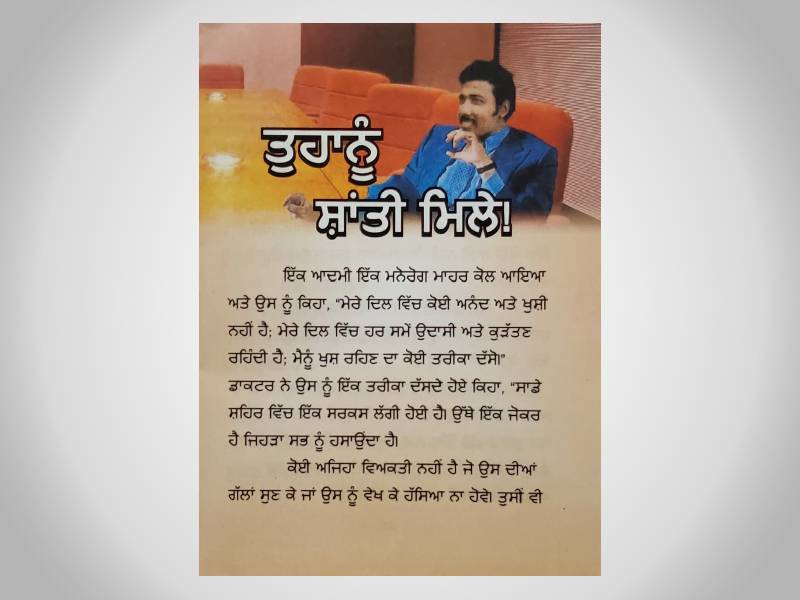 ਤੁਹਾਨੂੰ
ਸ਼ਾਂਤੀ ਮਿਲੇ!
ਇੱਕ ਆਦਮੀ ਇੱਕ ਮਨੋਰੋਗ ਮਾਹਰ ਕੋਲ ਆਇਆ
ਅਤੇ ਉਸ ਨੂੰ ਕਿਹਾ, "ਮੇਰੇ ਦਿਲ ਵਿੱਚ ਕੋਈ ਅਨੰਦ ਅਤੇ ਖੁਸ਼ੀ
ਨਹੀਂ ਹੈ; ਮੇਰੇ ਦਿਲ ਵਿੱਚ ਹਰ ਸਮੇਂ ਉਦਾਸੀ ਅਤੇ ਕੁੜੱਤਣ
ਰਹਿੰਦੀ ਹੈ; ਮੈਨੂੰ ਖੁਸ਼ ਰਹਿਣ ਦਾ ਕੋਈ ਤਰੀਕਾ ਦੱਸੋ।"
ਡਾਕਟਰ ਨੇ ਉਸ ਨੂੰ ਇੱਕ ਤਰੀਕਾ ਦੱਸਦੇ ਹੋਏ ਕਿਹਾ, "ਸਾਡੇ
ਸ਼ਹਿਰ ਵਿੱਚ ਇੱਕ ਸਰਕਸ ਲੱਗੀ ਹੋਈ ਹੈ। ਉੱਥੇ ਇੱਕ ਜੋਕਰ
ਹੈ ਜਿਹੜਾ ਸਭ ਨੂੰ ਹਸਾਉਂਦਾ ਹੈ।
ਕੋਈ ਅਜਿਹਾ ਵਿਅਕਤੀ ਨਹੀਂ ਹੈ ਜੋ ਉਸ ਦੀਆਂ
ਗੱਲਾਂ ਸੁਣ ਕੇ ਜਾਂ ਉਸ ਨੂੰ ਵੇਖ ਕੇ ਹੱਸਿਆ ਨਾ ਹੋਵੇ। ਤੁਸੀਂ ਵੀ